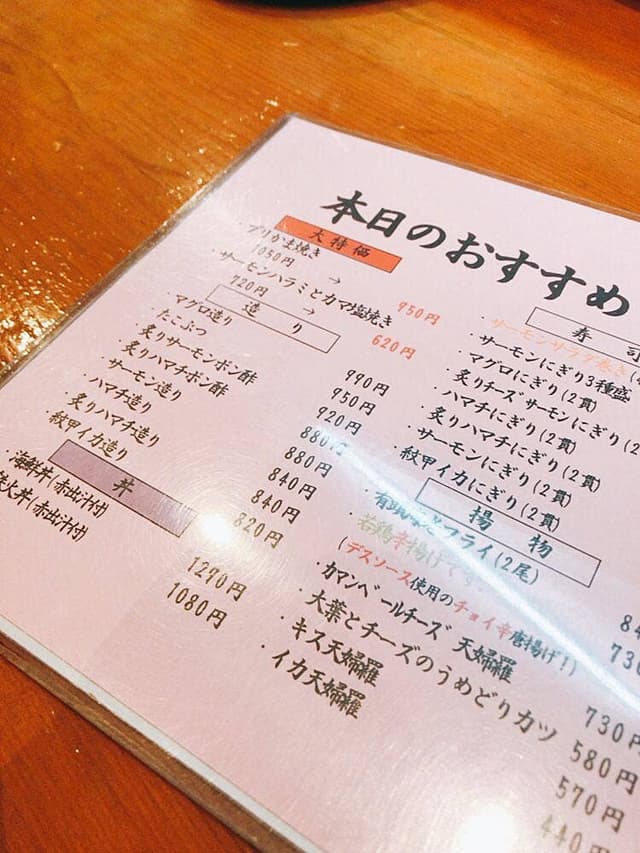 本日のおすすめ
大特価
・ブリかま焼き
1050円 → 950円
・サーモンハラミとカマ塩焼き
720円 → 620円
造り
・マグロ造り 990円
・たこぶつ 950円
・炙りサーモンポン酢 920円
・炙りハマチポン酢 880円
・サーモン造り 880円
・ハマチ造り 840円
・炙りハマチ造り 840円
・紋甲イカ造り 820円
丼
・海鮮丼(赤出汁付) 1270円
火丼(赤出汁付) 1080円
寿司
・サーモンサラダ巻き
・サーモンにぎり3種盛
・マグロにぎり(2貫)
・炙りチーズサーモンにぎり(2
・ハマチにぎり(2貫)
・炙りハマチにぎり(2貫)
・サーモンにぎり(2貫)
・紋甲イカにぎり(2貫)
揚物
・有頭 フライ(2尾)
・若鶏辛揚げです
(デスソース使用のチョイ辛唐揚げ!)
・カマンベールチーズ 天婦羅 730円
・大葉とチーズのうめどりカツ 580円
・キス天婦羅 570円
・イカ天婦羅 440円